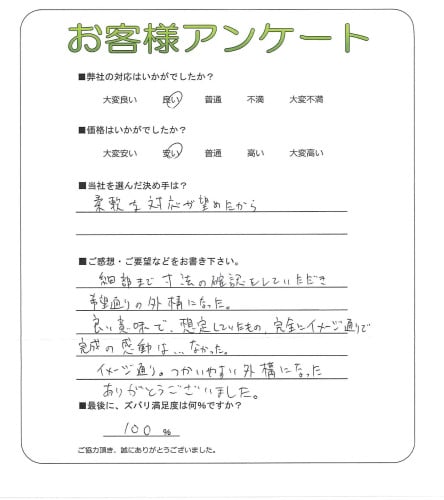 お客様アンケート
■弊社の対応はいかがでしたか？
大変良い 良い 普通 不満 大変不満
■価格はいかがでしたか？
大変安い 安い 普通 高い 大変高い
■当社を選んだ決め手は？
柔軟な対応が望めたから
■ご感想・ご要望などをお書き下さい。
細部まで寸法の確認をしていただき
希望通りの外構になった。
良い意味で、想定していたもの、完全にイメージ通りで
完成の感動は...なかった。
イメージ通り。つかいやすい外構になった
ありがとうございました。
■最後に、ズバリ満足度は何％ですか？
100 %
ご協力頂き、誠にありがとうございました。